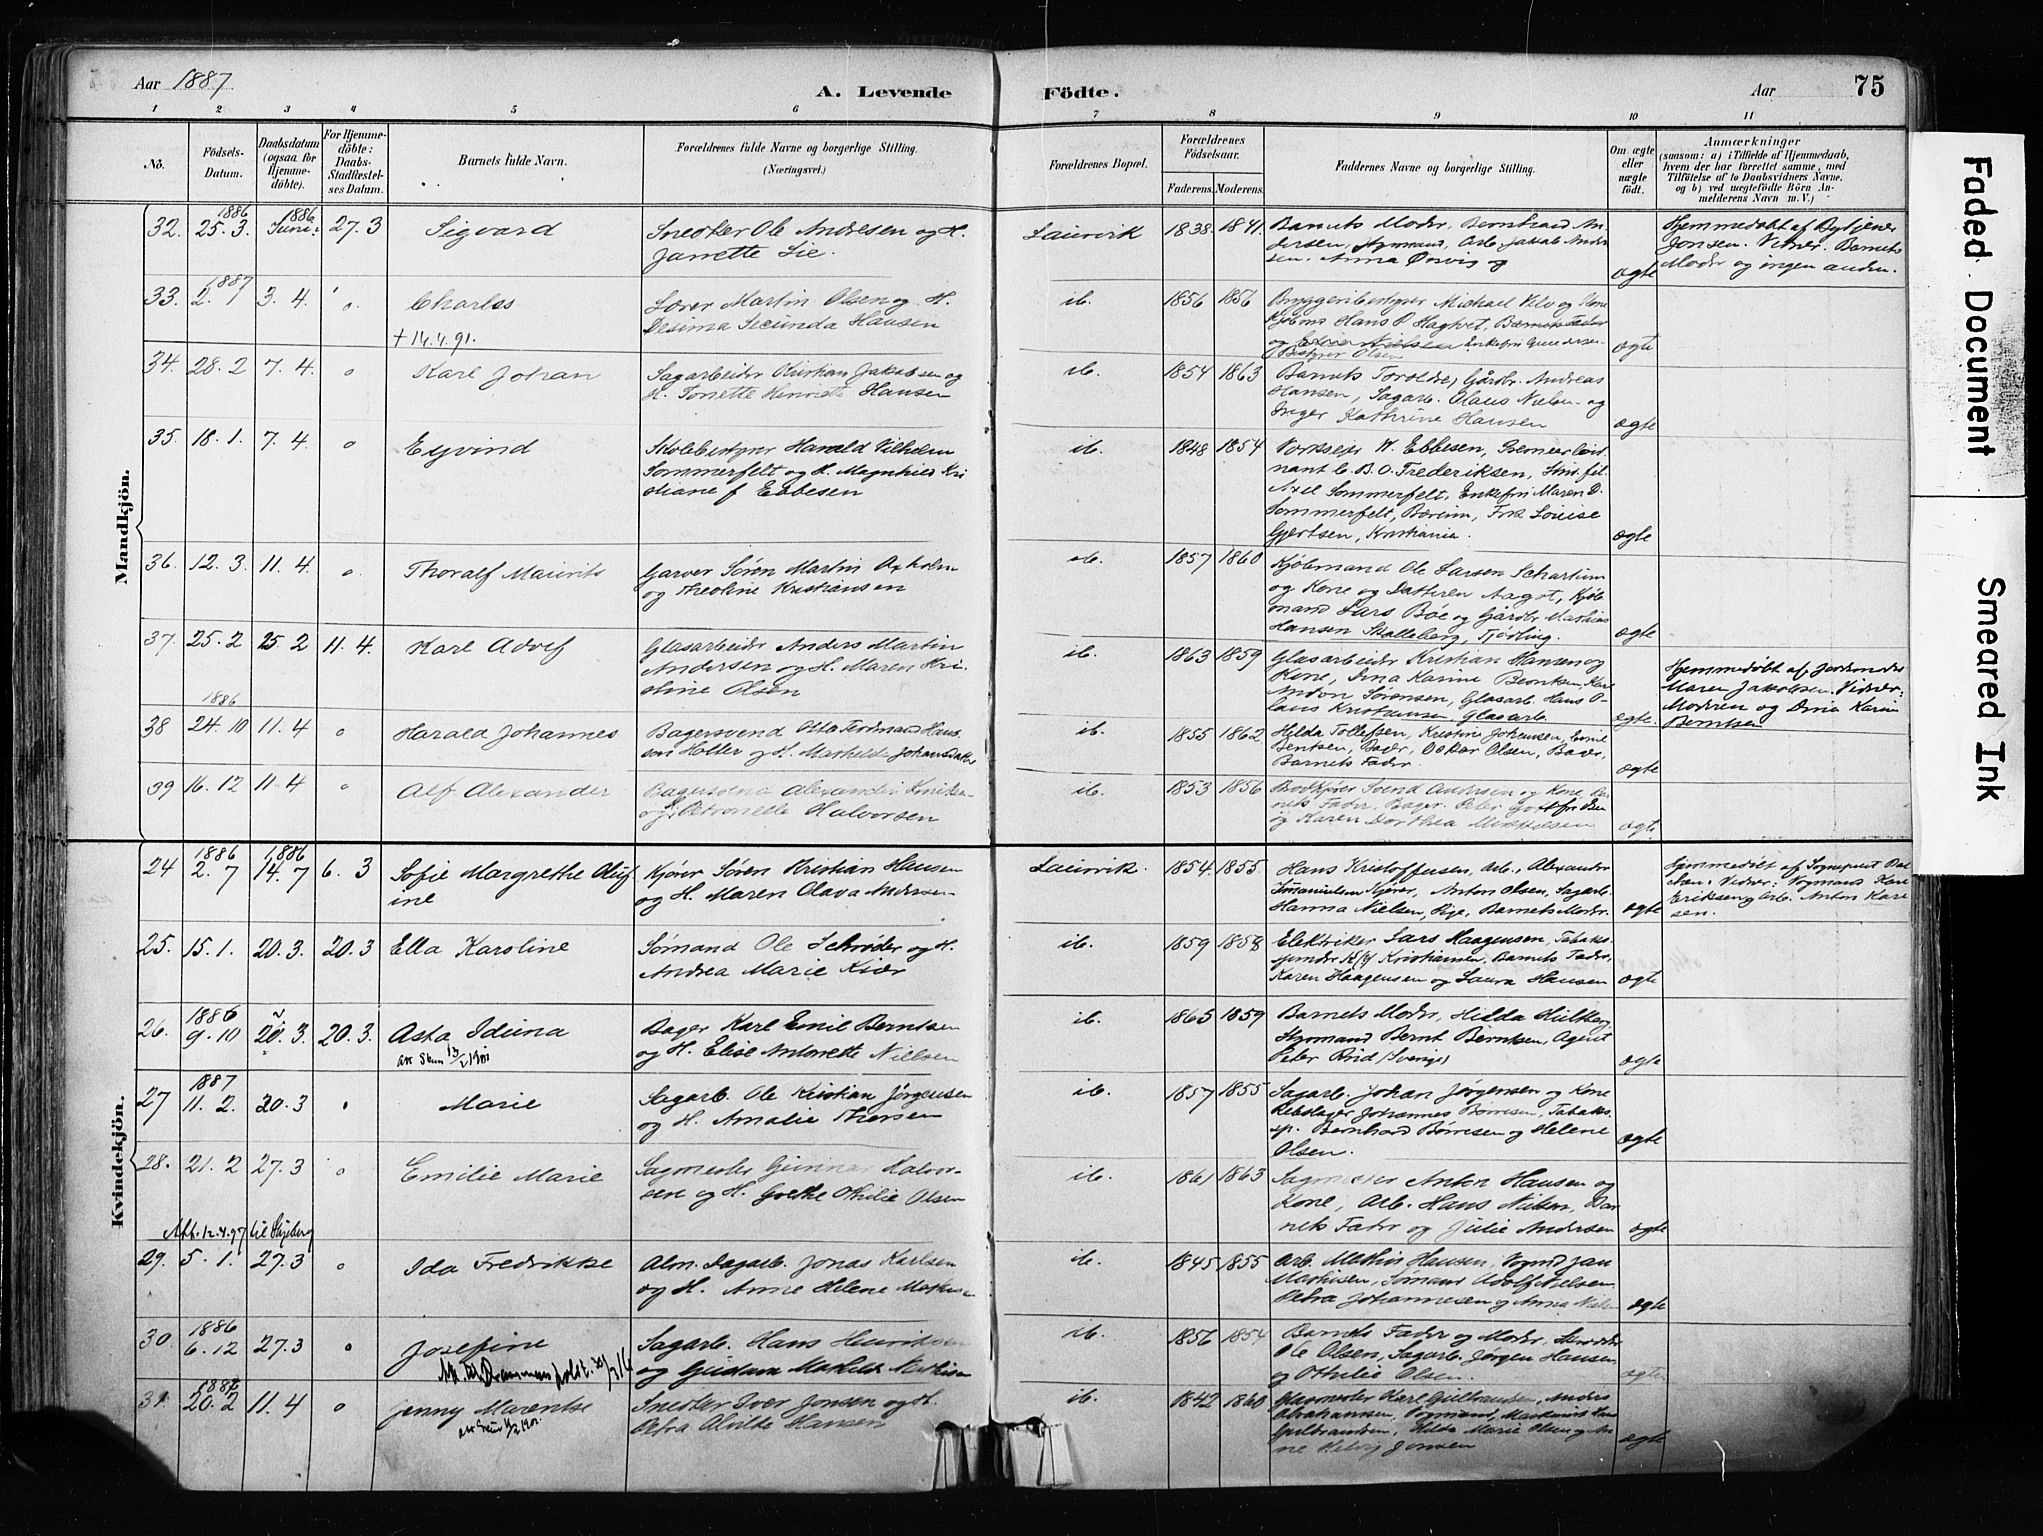 Aar 1887
A. Levende Födte.
Aar 75
1 2 3 4 5 6 7 8 9 10 11
No.
Födsels-Datum.
Daabsdatum (ogsaa for Hjemme-döbte).
For Hjemme-döbte: Daabs-Stadfestel-ses Datum.
Barnets fulde Navn.
Forældrenes fulde Navne og borgerlige Stilling. (Næringsvei.)
Forældrenes Bopæl.
Forældrenes Födselsaar.
Faderens. Moderens.
Faddernes Navne og borgerlige Stilling.
Om ægte eller uægte födt.
Anmærkninger
(saasom: a) i Tilfælde af Hjemmedaab, hvem der har forrettet samme, med Tilföielse af to Daabsvidners Navne, og b) ved uægtefödte Börn Anmelderens Navn m.V.)
Mandkjön.
32. 1886 25. 3. 1886 Juni: 27. 3 Sigvard
Snedker Ole Andresen og H.
Janette Lie.
Laurvik 1838. 1841. Barnets Moder, Bernhard An-
dersen, Styrmand, Arb. Jakob Ander
sen. Anna
ægte
Hjemmedøbt af
Jonsen. Vidner. Barnets
Moder og ingen anden.
33. 1887 2. 1 3. 4. " Charles
† 14.4.91.
Lærer Martin Olsen og H.
Desima Secunda Hansen
ib. 1856 1856 Bryggeribestyrer Michael
Hans P. Hagtvet, Barnets Fader
Olsen
ægte
34. 28. 2 7. 4. " Karl Johan
Sagarbeider Kristian Jakobsen og
H. Tonette Henriette Hansen
ib. 1854 1863 Barnets Foreldre, Gårdbr. Andreas
Hansen, Sagarb. Olaus Nielsen og
Inger Kathrine Hansen
ægte
35. 18. 1. 7. 4 " Eyvind
Skolebestyrer Harald Vilhelm
Sommerfelt og H. Magnhild Kri
stiane f Ebbesen
ib. 1848 1854 W. Ebbesen, Premierløit
nant C. B. O. Frederiksen, Stud. fil.
Axel Sommerfelt, Enkefru Maren D.
Sommerfelt, Bærum, Frk Louise
Gjertsen, Kristiania.
ægte
36. 12. 3. 11. 4. " Thoralf Maurits
Garver Søren Martin Axholm
og Theoline Kristiansen
ib. 1857 1860 Kjøbmand Ole Larsen Schartum
og Kone og Datteren Aagot, Kjøb
mand Lars Bøe og Gårdbr Mathias
Hansen Skalleberg, Tjødling.
ægte
37. 25. 2 25. 2 11. 4. Karl Adolf
Glasarbeider Anders Martin
Andersen og H. Maren Kri-
stine Olsen
ib. 1863 1859 Glasarbeider Kristian Hansen og
Kone, Dina Karine Berntsen, Karl
Anton Sørensen, Glasarb. Hans O-
laus Kristiansen Glasarb.
ægte.
Hjemmedøbt af Jordemoder
Maren Jakobsen. Vidner:
Moderen og Dina Karine
Berntsen
38 1886 24. 10 11. 4 " Harald Johannes
Bagersvend Otto Ferdinand Hans
son Holter og H. Mathilde
ib. 1855 1862 Hilda Tollefsen, Kristine Johansen, Emil
Bentsen, Bager, Oskar Olsen, Bager,
Barnets Fader.
ægte
39 16. 12 11. 4 " Alf Alexander
Alexander
og H. Petronelle Halvorsen
ib. 1853 1856 Svend Andersen og Kone Bar
nets Fader, Bager Peter
og Karen Dorthea
ægte
Kvindekjön.
24 1886 2. 7 1886 14. 7 6. 3 Sofie Margrethe Oluf
ine
Kjører Søren Kristian Hansen
og H. Maren Olava Andersen
Laurvik. 1854. 1855. Hans Kristoffersen, Arb., Alexander
Emanuelsen Kjører, Anton Olsen, Sagarb.
Hanna Nielsen, Pige, Barnets Moder.
ægte
Hjemmedøbt af Sogneprest
Vidner: Vognmand Karl
Eriksen og Arb. Anton Karl
sen.
25. 15. 1. 20. 3. 20. 3 Ella Karoline
Sømand Ole Schrøder og H.
Andrea Marie Kiær
ib. 1859 1858 Elektriker Lars Haagensen, Tabaks-
spinder Kristiansen, Barnets Fader,
Karen Haagensen og Laura Hansen
ægte
26. 1886 9. 10 20. 3. 20. 3. Asta Iduna
Bager Karl Emil Berntsen
og H. Elise Antonette Nielsen
ib. 1865 1859 Barnets Moder, Hilda Hultberg
Styrmand Bernt Berntsen, Agent
Peter Brid (Sverige)
ægte
27 1887 11. 2. 20. 3 " Marie
Sagarb. Ole Kristian Jørgensen
og H. Amalie Thorsen
ib. 1857 1855 Sagarb. Johan Jørgensen og Kone
Rebslager Johannes Børresen, Tabaks
sp. Bernhard Børresen og Helene
Olsen.
ægte
28. 21. 2 27. 3 " Emilie Marie
Sagmester Gunnar Halvor-
sen og H. Grethe Othilie Olsen
ib. 1861 1863 Sagmester Anton Hansen og
Kone, Arb. Hans Nilsen, Bar
nets Fader og Julie Andersen
ægte
Att. 12.4.97 til Skjeberg
29. 5. 1. 27. 3 " Ida Fredrikke
Alm. Sagarb. Jonas Karlsen
og H. Anne Helene
ib. 1845 1855 Arb. Mathias Hansen, Vognmd Jan
Mathisen, Sømand Adolf Nielsen
Petra Johannesen og Anna
ægte
30. 1886 6. 12 27. 3 " Josefine
Sagarb. Hans Henriksen
og Gustava Mathilde Mathisen
ib. 1856 1854 Barnets Fader og Moder,
Ole Olsen, Sagarb. Jørgen Hansen,
og Othilie Olsen.
ægte
31. 1887 20. 2 11. 4 " Jenny Marentse
Snedker Iver Jonsen og H.
Petra Alvilde Hansen
ib. 1842 1860 Glasmester Karl Gulbrandsen, Anders
Abrahamsen, Vognmand,
Gulbrandsen, Hilda Marie Olsen og An
ne Helvig Jonsen
ægte
Faded Document
Smeared Ink